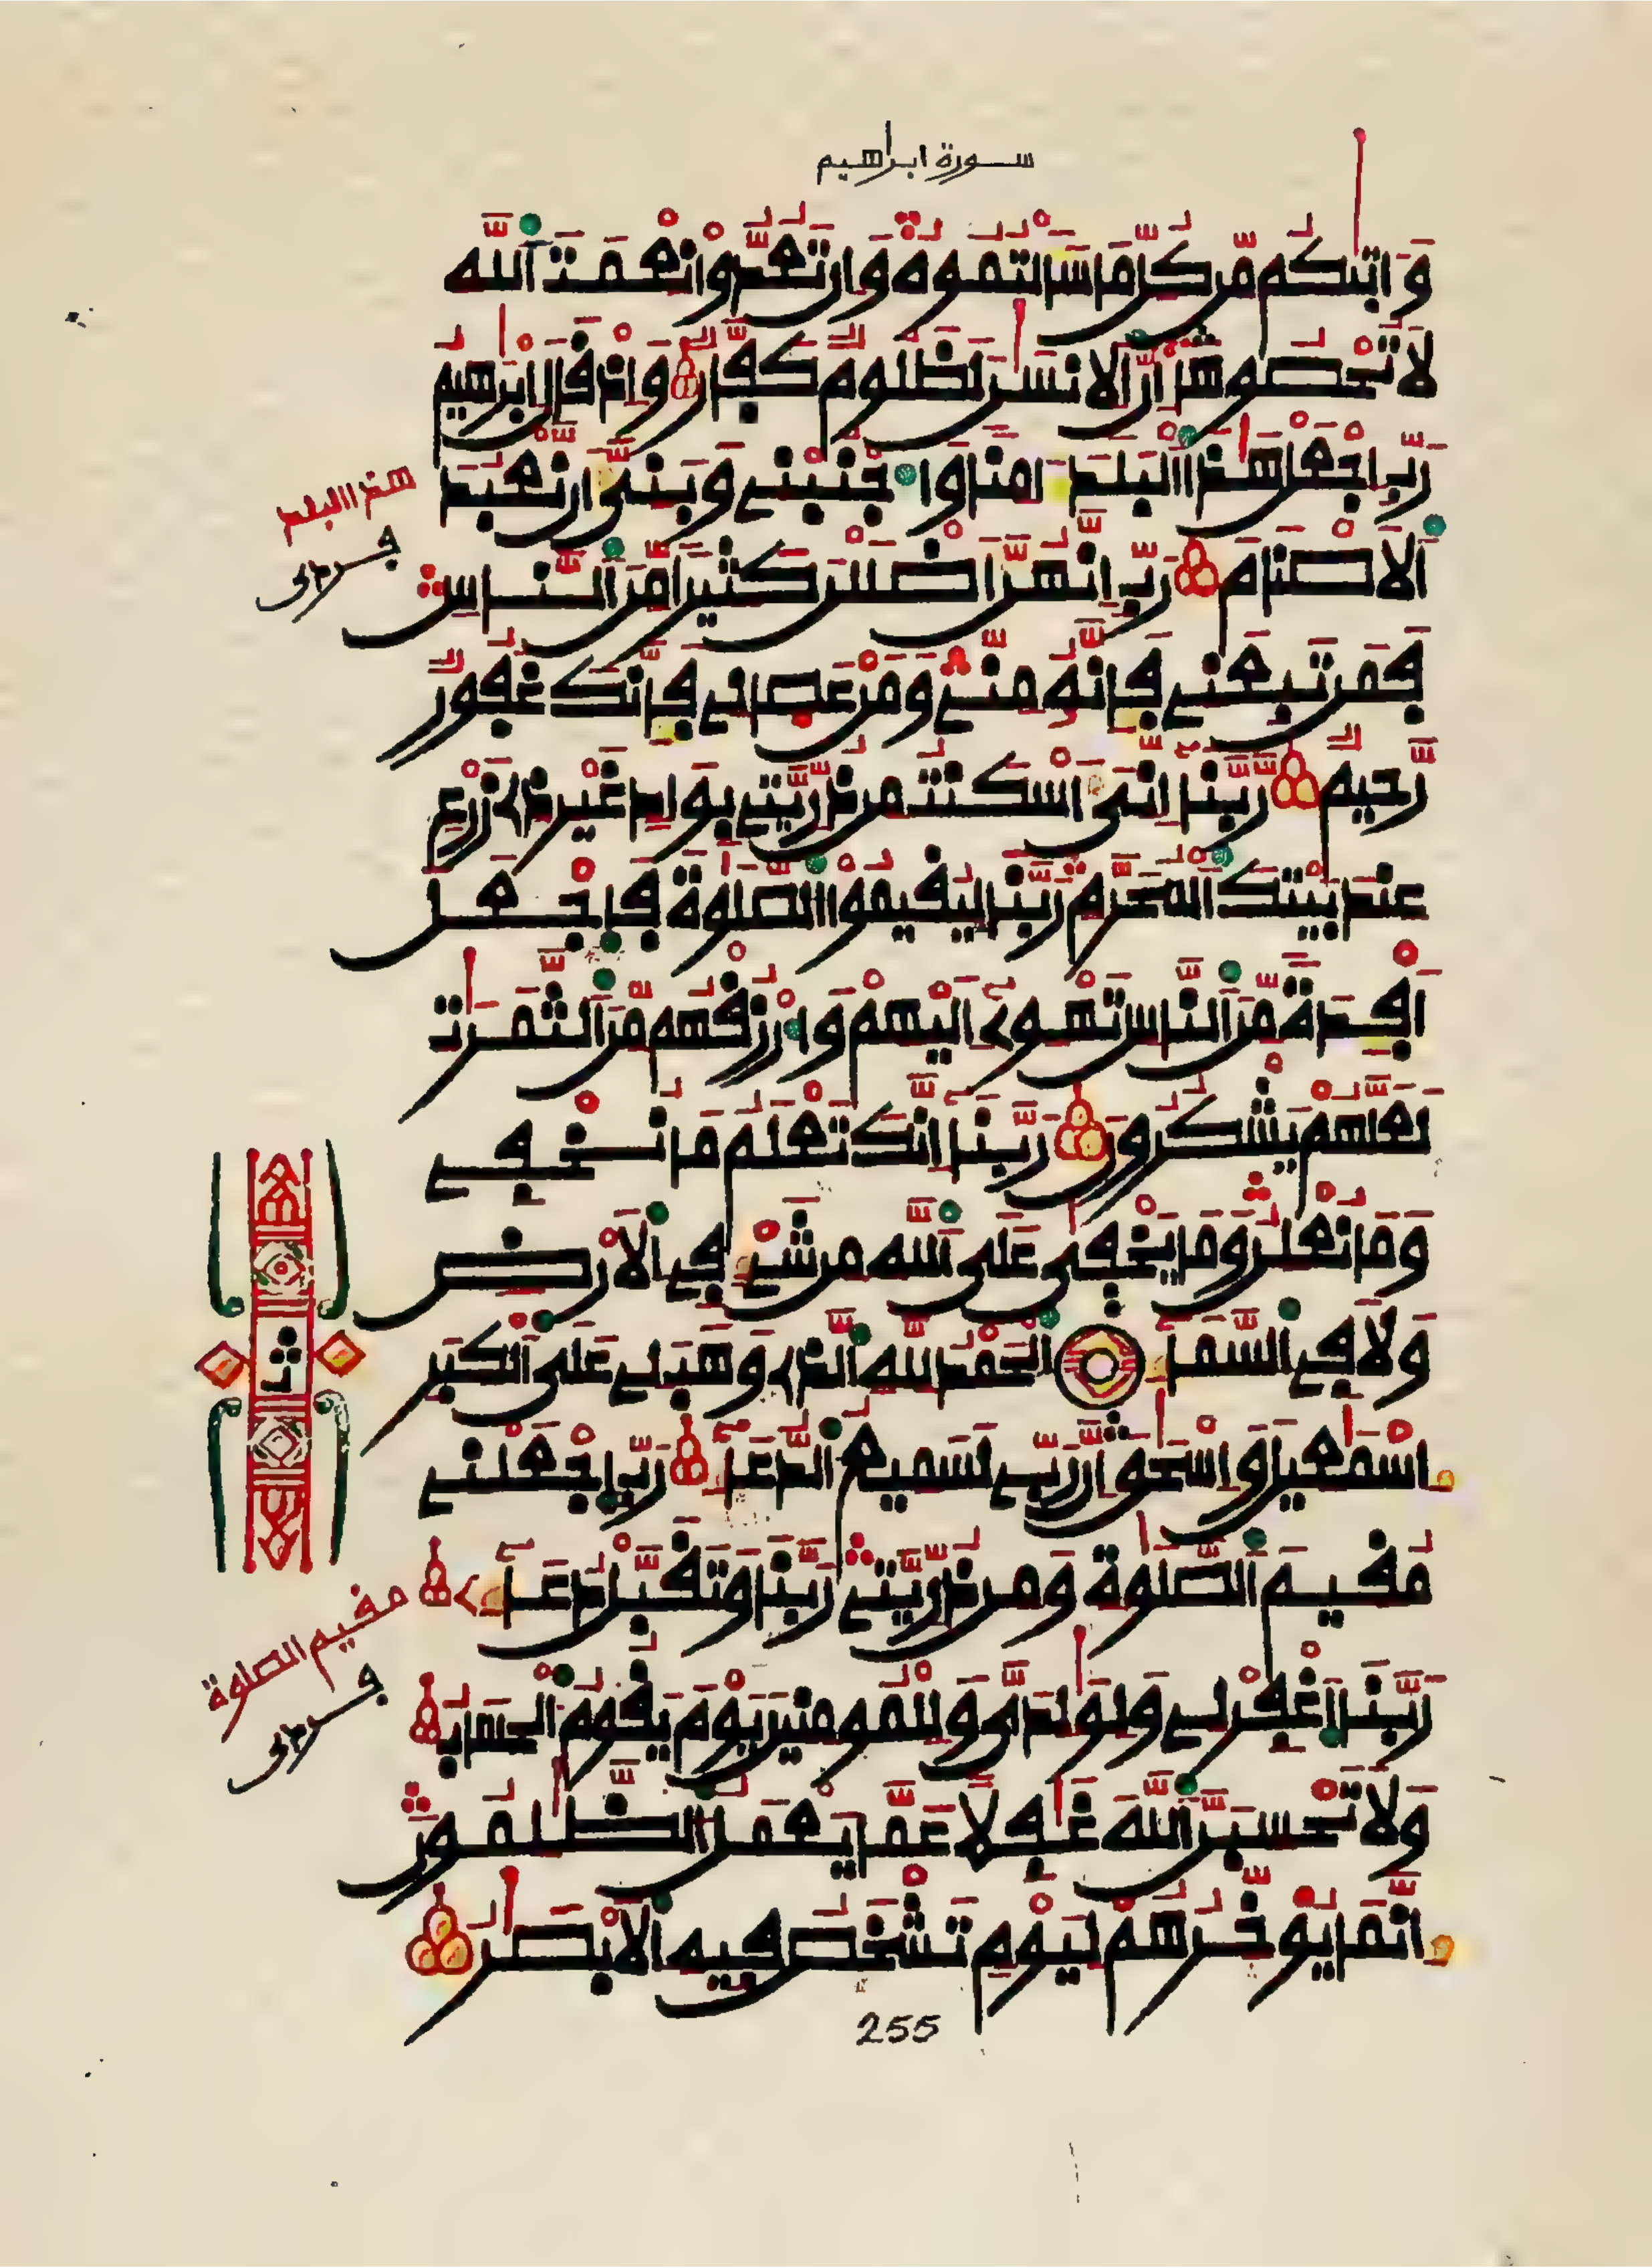 سورة ابراهيم
وَءَاتٜيٰكُم مِّن كُلِّ مَا سَأَلْتُمُوهُ وَإِن تَعُدُّوا نِعْمَتَ اَللَّهِ
لَا تُحْصُوهَا إِنَّ اَلْإِنسَٰنَ لَظَلُومٌ كَفَّارٌ وَإِذْ قَالَ إِبْرَٰهِيمُ
رَبِّ اِجْعَلْ هَٰذَا اَلْبَلَدَ ءَامِنًا وَاجْنُبْنِے وَبَنِيَّ أَن نَّعْبُدَ
اَلْأَصْنَامَ رَبِّ إِنَّهُنَّ أَضْلَلْنَ كَثِيرًا مِّنَ اَلنَّاسِ
فَمَن تَبِعَنِے فَإِنَّهُۥ مِنِّے وَمَنْ عَصَانِے فَإِنَّكَ غَفُورٌ
رَّحِيمٌ رَّبَّنَا إِنِّيَ أَسْكَنتُ مِن ذُرِّيَّتِے بِوَادٍ غَيْرِ ذِے زَرْعٍ
عِندَ بَيْتِكَ اَلْمُحَرَّمِ رَبَّنَا لِيُقِيمُوا اَلصَّلَوٰةَ فَاجْعَلَ
اَفْـِٕدَةً مِّنَ اَلنَّاسِ تَهْوِے إِلَيْهِمْ وَارْزُقْهُم مِّنَ اَلثَّمَرَٰتِ
لَعَلَّهُمْ يَشْكُرُونَ رَبَّنَا إِنَّكَ تَعْلَمُ مَا نُخْفِے
وَمَا نُعْلِنُ وَمَا يَخْفٜيٰ عَلَى اَللَّهِ مِن شَےْءٍ فِي اِلْأَرْضِ
وَلَا فِي اِلسَّمَآءِ اِلْحَمْدُ لِلَّهِ اِلذِے وَهَبَ لِے عَلَى اَلْكِبَرِ
إِسْمَٰعِيلَ وَإِسْحَٰقَ إِنَّ رَبِّے لَسَمِيعُ اُلدُّعَآءِ رَبِّ اِجْعَلْنِے
مُقِيمَ اَلصَّلَوٰةِ وَمِن ذُرِّيَّتِے رَبَّنَا وَتَقَبَّلْ دُعَآءِے
رَبَّنَا اَغْفِرْ لِے وَلِوَٰلِدَيَّ وَلِلْمُومِنِينَ يَوْمَ يَقُومُ اُلْحِسَابُ
وَلَا تَحْسِبَنَّ اَللَّهَ غَٰفِلًا عَمَّا يَعْمَلُ اُلظَّٰلِمُونَ
إِنَّمَا يُوَخِّرُهُمْ لِيَوْمٍ تَشْخَصُ فِيهِ اِلْأَبْصَٰرُ
هذا البلد
فردى
ثمن
مقيم الصلوة
فردى
255